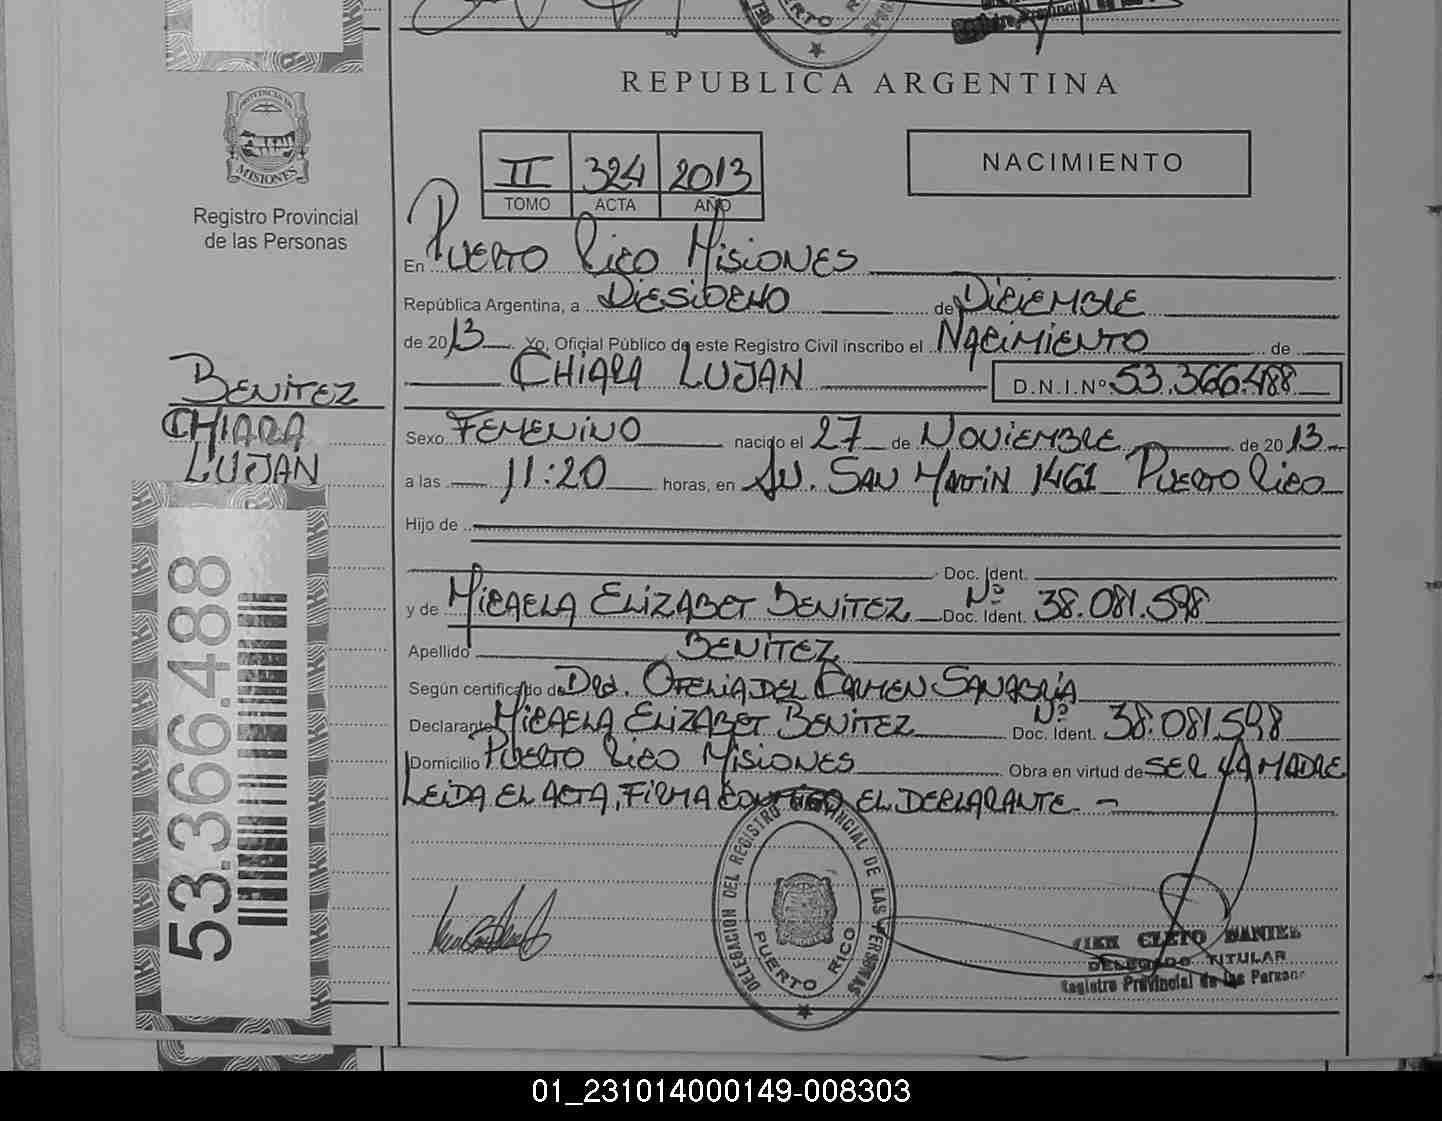 PUERTO RICO
REPUBLICA ARGENTINA
PROVINCIA DE
MISIONES
Registro Provincial
de las Personas
II 324 2013
TOMO ACTA AÑO
NACIMIENTO
En PUERTO RICO MISIONES
República Argentina, a DIESIOCHO de DICIEMBRE
de 2013. Yo, Oficial Público de este Registro Civil inscribo el NACIMIENTO de
CHIARA LUJAN D.N.I.Nº 53.366.488
BENITEZ
CHIARA
LUJAN
Sexo FEMENINO nacido el 27 de NOVIEMBRE de 2013
a las 11:20 horas, en AV. SAN MARTIN 1461 PUERTO RICO
Hijo de
Doc. Ident.
y de MICAELA ELIZABET BENITEZ Doc. Ident. Nº 38.081.598
Apellido BENITEZ
Según certificado de DRA. OFELIA DEL CARMEN SANABRIA
Declarante MICAELA ELIZABET BENITEZ Doc. Ident. Nº 38.081.598
Domicilio PUERTO RICO MISIONES Obra en virtud de SER LA MADRE
LEIDA EL ACTA, FIRMA CONMIGO EL DECLARANTE. -
53.366.488
DELEGACIÓN DEL REGISTRO PROVINCIAL DE LAS PERSONAS
PUERTO RICO
CLETO DANIEL
DELEGADO TITULAR
Registro Provincial de las Personas
01_231014000149-008303